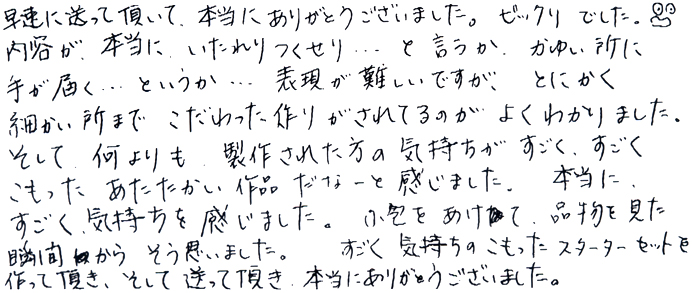 早速に送って頂いて、本当にありがとうございました。ビックリでした。
内容が、本当に、いたれりつくせり…と言うか、かゆい所に
手が届く…というか… 表現が難しいですが、とにかく
細かい所まで こだわった作りがされてるのが よくわかりました。
そして、何よりも、製作された方の気持ちが すごく、すごく
こもった あたたかい作品だなーと感じました。 本当に、
すごく、気持ちを感じました。 小包をあけて、品物を見た
瞬間から そう思いました。 すごく気持ちのこもったスターターセットを
作って頂き、そして送って頂き、本当にありがとうございました。